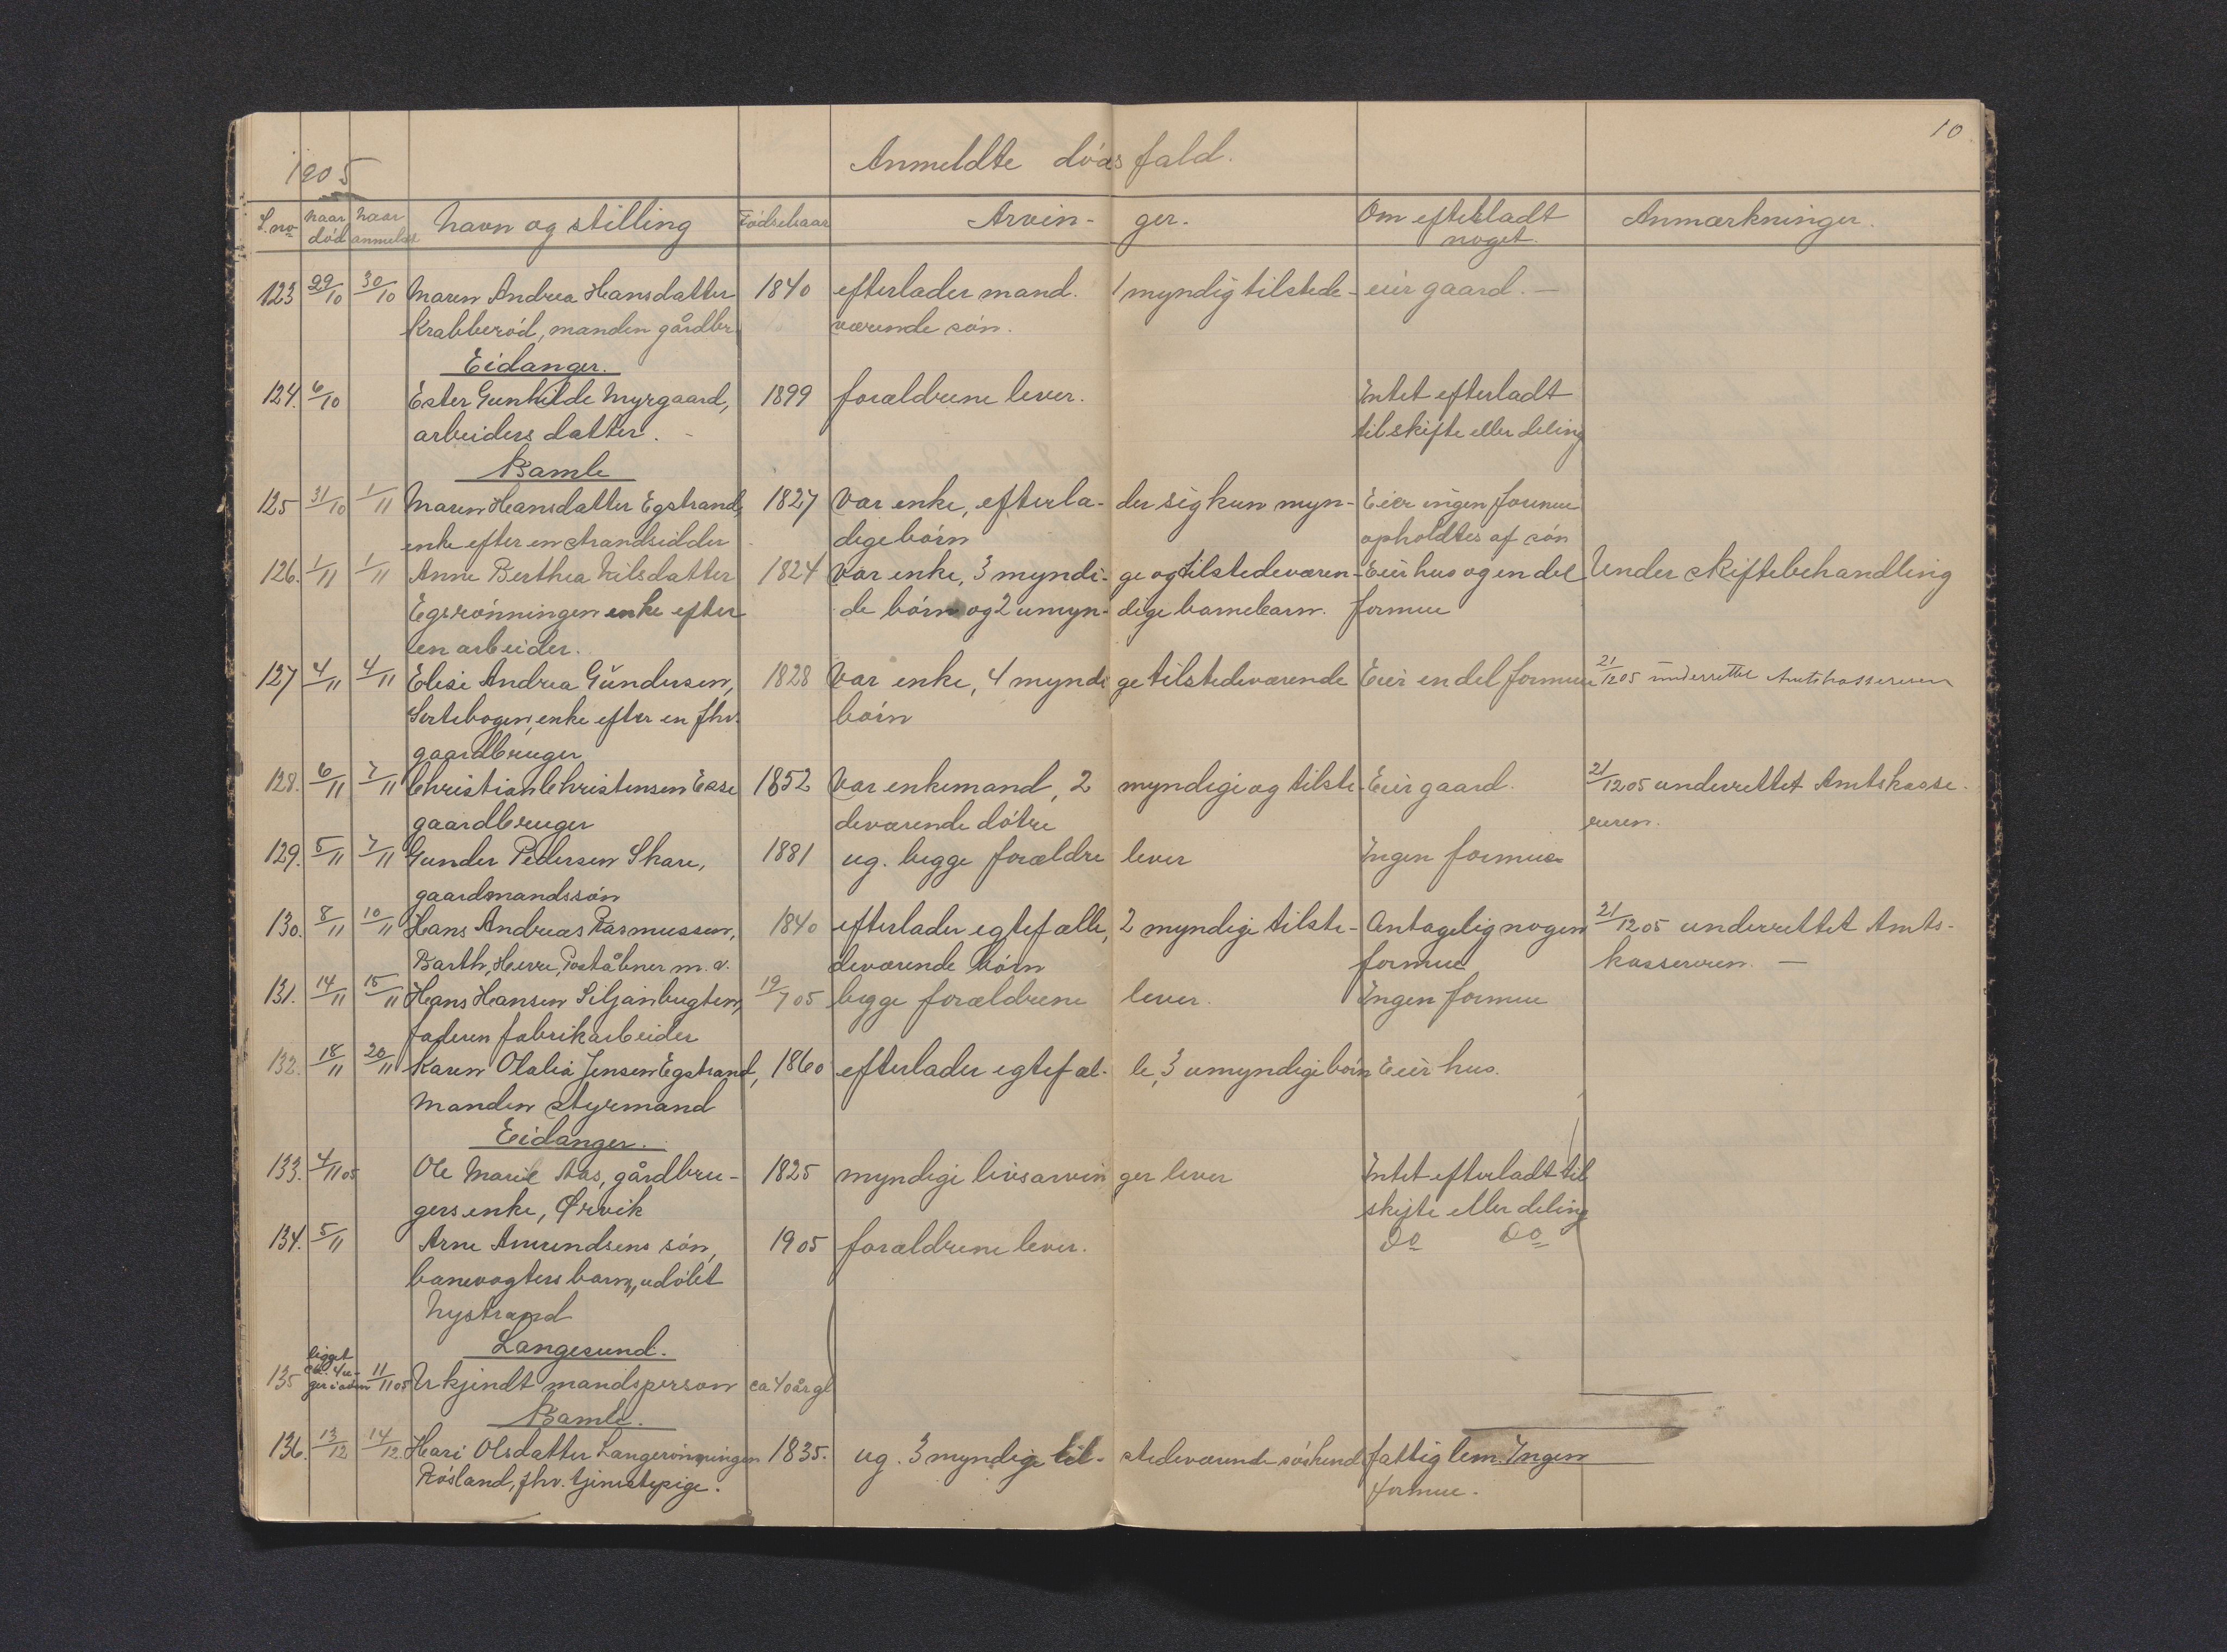 10
1905 Anmeldte dødsfald.
S.no naar død naar anmeldt Navn og stilling Fødselsaar Arvinger. Om efterladt noget. Anmærkninger.
123 29/10 30/10 Maren Andrea Hansdatter 1840 efterlader mand. 1 myndig tilstede- eier gaard. —
Krabberød, manden gårdbr. værende søn.
Eidanger.
124. 6/10 Ester Gunhilde Myrgaard, 1899 forældrene lever. Intet efterladt
arbeiders datter. - til skifte eller deling
Bamle
125 31/10 1/11 Maren Hansdatter Egstrand, 1827 Var enke, efterla- der sig kun myn- Eier ingen formue
enke efter en strandsidder dige børn opholdtes af søn
126. 1/11 1/11 Anne Berthea Nilsdatter 1824 Var enke, 3 myndi- ge og tilstedeværen- Eier hus og en del Under skiftebehandling
Egsrønningen enke efter de børn og 2 umyn- dige barnebarn. formue
en arbeider.
127 4/11 4/11 Elise Andrea Gundersen, 1828 Var enke, 4 myndi ge tilstedeværende Eier en del formue 21/12 05 underrettet Amtskassereren
Sertebogen, enke efter en fhv. børn
gaardbruger
128. 6/11 7/11 Christian Christensen Esse 1852 Var enkemand, 2 myndige og tilste- Eier gaard. 21/12 05 underrettet Amtskasse-
gaardbruger deværende døtre reren.
129. 5/11 7/11 Gunder Pedersen Skare, 1881 ug. begge forældre lever Ingen formue
gaardmandssøn
130. 8/11 10/11 Hans Andreas Rasmussen, 1840 efterlader egtefælle, 2 myndige tilste- Antagelig nogen 21/12 05 underrettet Amts-
Barth, Herre, Poståbner m.v. deværende børn formue kassereren. —
131. 14/11 15/11 Hans Hansen Siljanbugten, 19/7 05 begge forældrene lever. Ingen formue
faderen fabrikarbeider
132. 18/11 20/11 Karen Olalia Jensen Egstrand, 1860 efterlader egtefæl- le, 3 umyndige børn Eier hus.
Manden styrmand
Eidanger.
133. 4/11 05 Ole Marie Aas, gårdbru- 1825 myndige livsarvin ger lever Intet efterladt til
gers enke, Ørvik skifte eller deling
134. 5/11 Arne Amundsens søn, 1905 forældrene lever. Do Do
banevogters barn, udøbt
Nystrand
Langesund.
135 ligget ca. 4 u- ger i søen 11/11 05 Ukjendt mandsperson ca 40 år gl
Bamle.
136. 13/12 14/12 Kari Olsdatter Langerønningen 1835. ug. 3 myndige til- stedeværende søskend fattiglem. Ingen
Røsland, fhv. tjenestepige. formue.